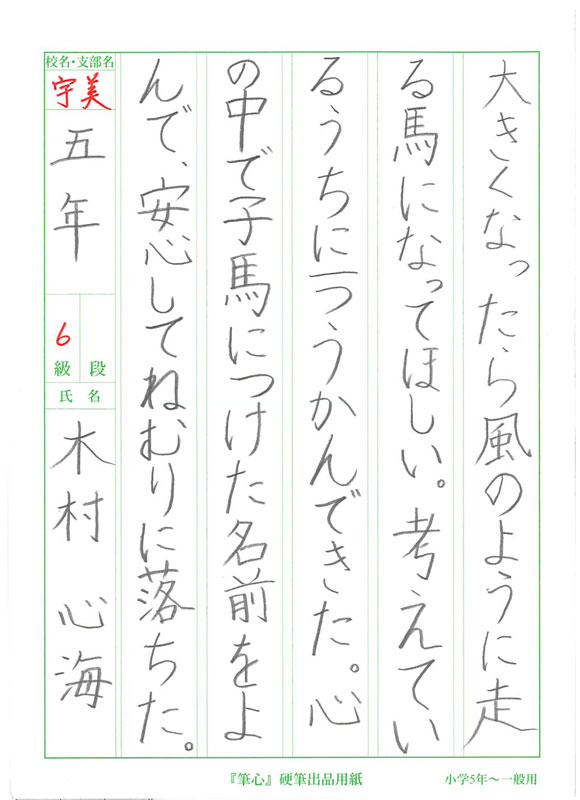 大きくなったら風のように走
る馬になってほしい。考えてい
るうちに一つうかんできた。心
の中で子馬につけた名前をよ
んで、安心してねむりに落ちた。
校名・支部名
宇美
五年
段
6級
氏名
木村 心海
『筆心』硬筆出品用紙
小学5年〜一般用